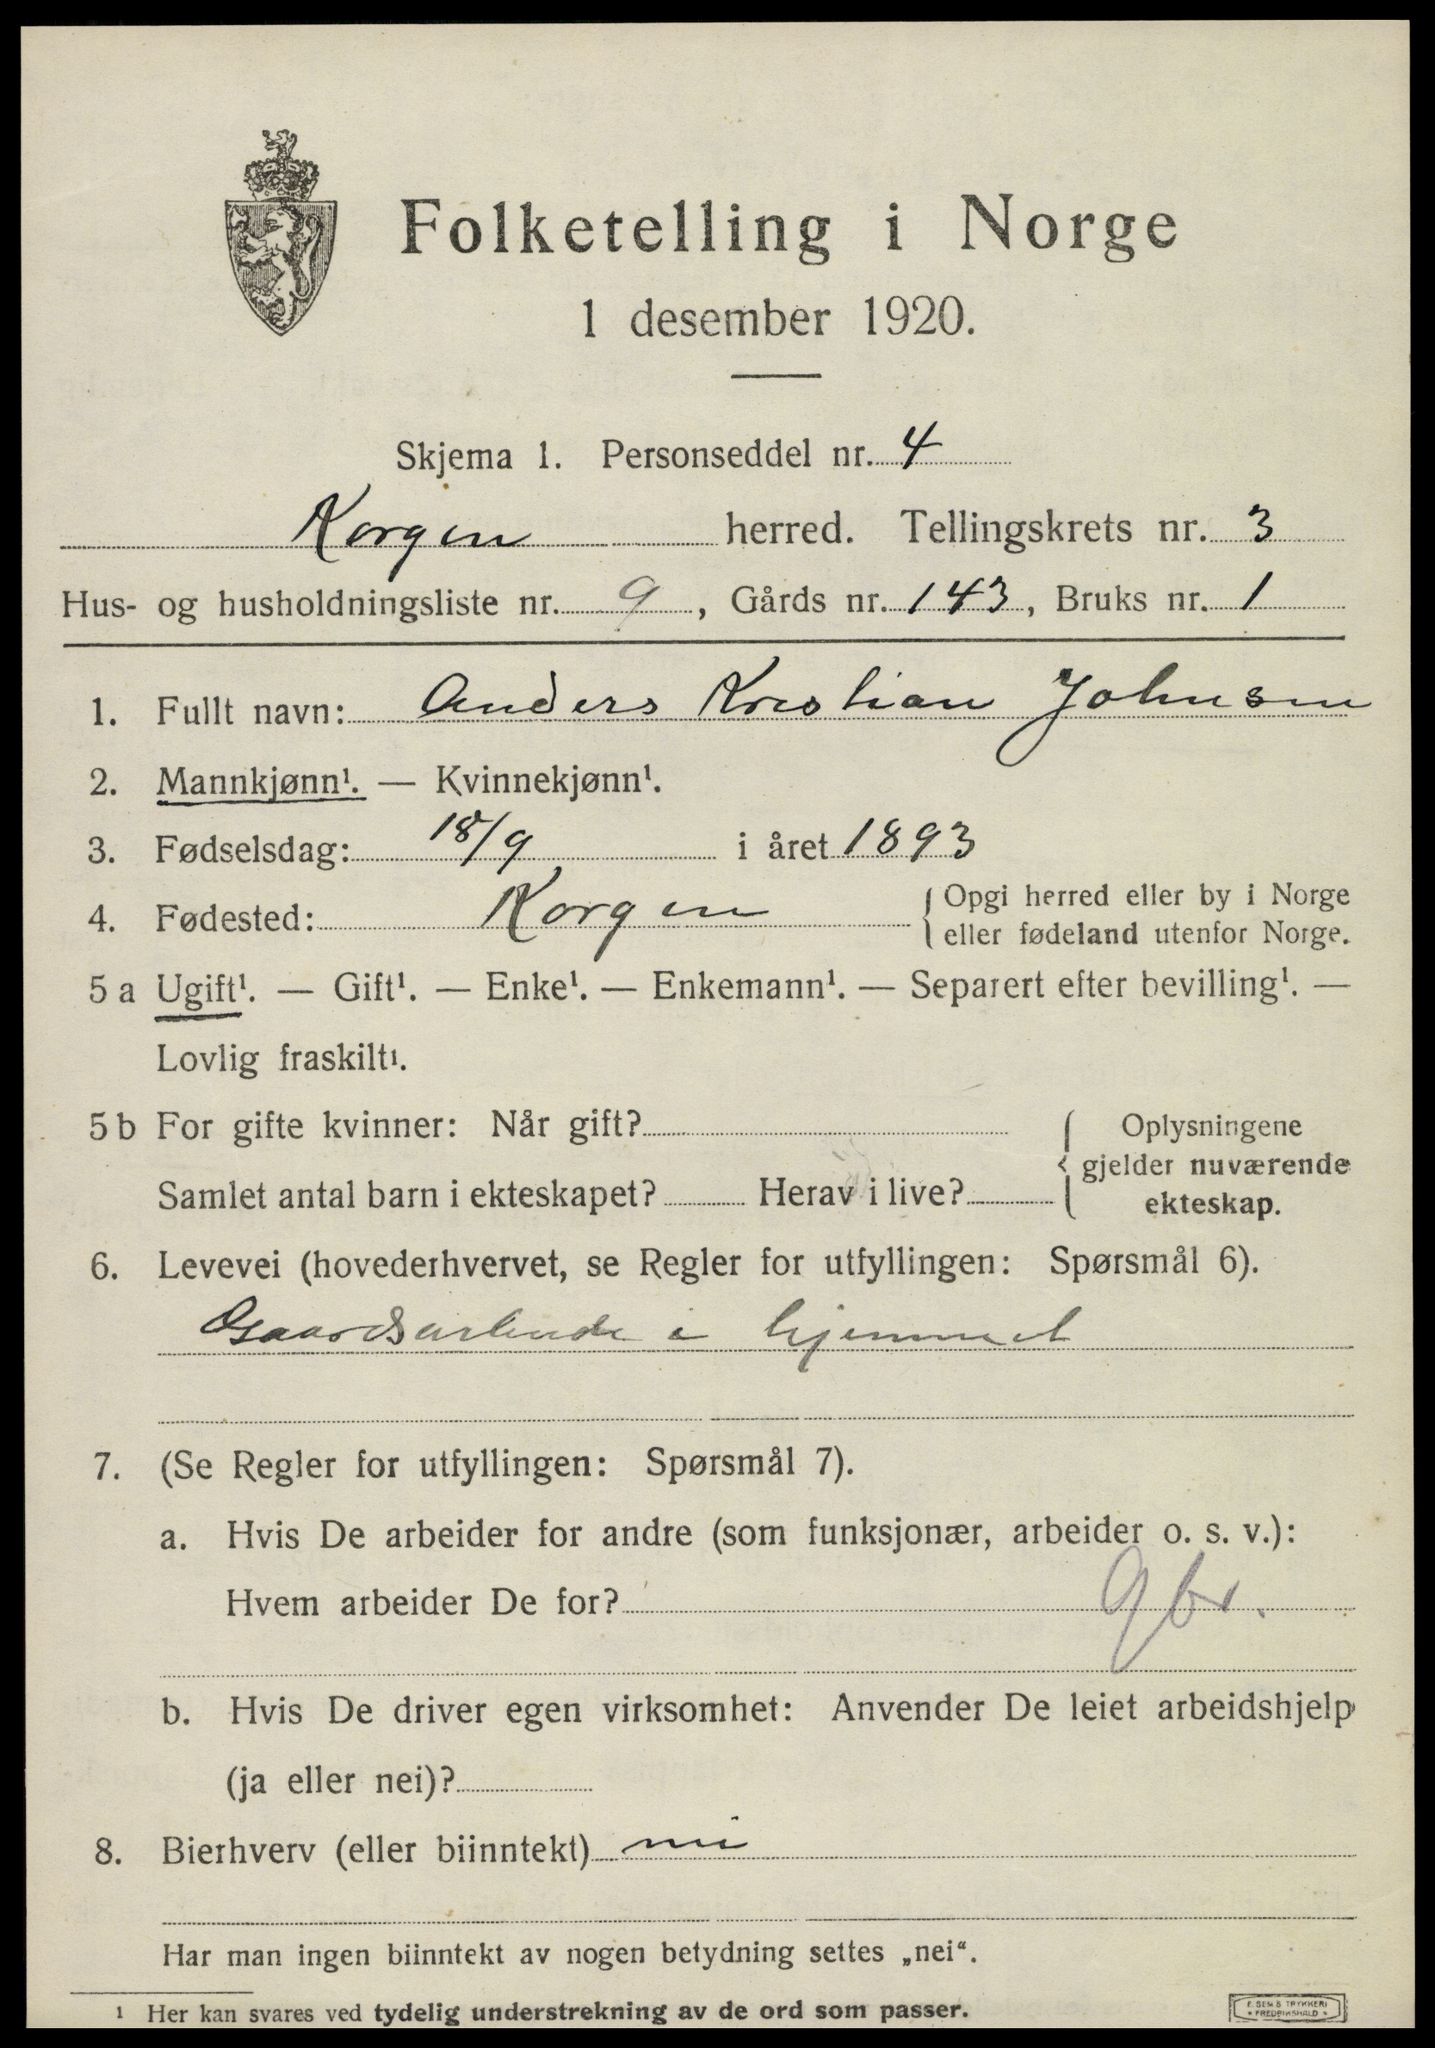 Folketelling i Norge
1 desember 1920.
Skjema 1. Personseddel nr. 4
Korgen herred. Tellingskrets nr. 3
Hus- og husholdningsliste nr. 9, Gårds nr. 143, Bruks nr. 1
1. Fullt navn: Anders Kristian Johnsen
2. Mannkjønn¹. — Kvinnekjønn¹.
3. Fødselsdag: 18/9 i året 1893
4. Fødested: Korgen { Opgi herred eller by i Norge
eller fødeland utenfor Norge.
5 a Ugift¹. — Gift¹. — Enke¹. — Enkemann¹. — Separert efter bevilling¹. —
Lovlig fraskilt¹.
5 b For gifte kvinner: Når gift?
Samlet antal barn i ekteskapet? Herav i live?
{ Oplysningene
gjelder nuværende
ekteskap.
6. Levevei (hovederhvervet, se Regler for utfyllingen: Spørsmål 6).
i hjemmet
7. (Se Regler for utfyllingen: Spørsmål 7).
a. Hvis De arbeider for andre (som funksjonær, arbeider o. s. v.):
Hvem arbeider De for? gbr.
b. Hvis De driver egen virksomhet: Anvender De leiet arbeidshjelp
(ja eller nei)?
8. Bierhverv (eller biinntekt) nei
Har man ingen biinntekt av nogen betydning settes „nei“.
¹ Her kan svares ved tydelig understrekning av de ord som passer.
E. SEM'S TRYKKERI
FREDRIKSHALD